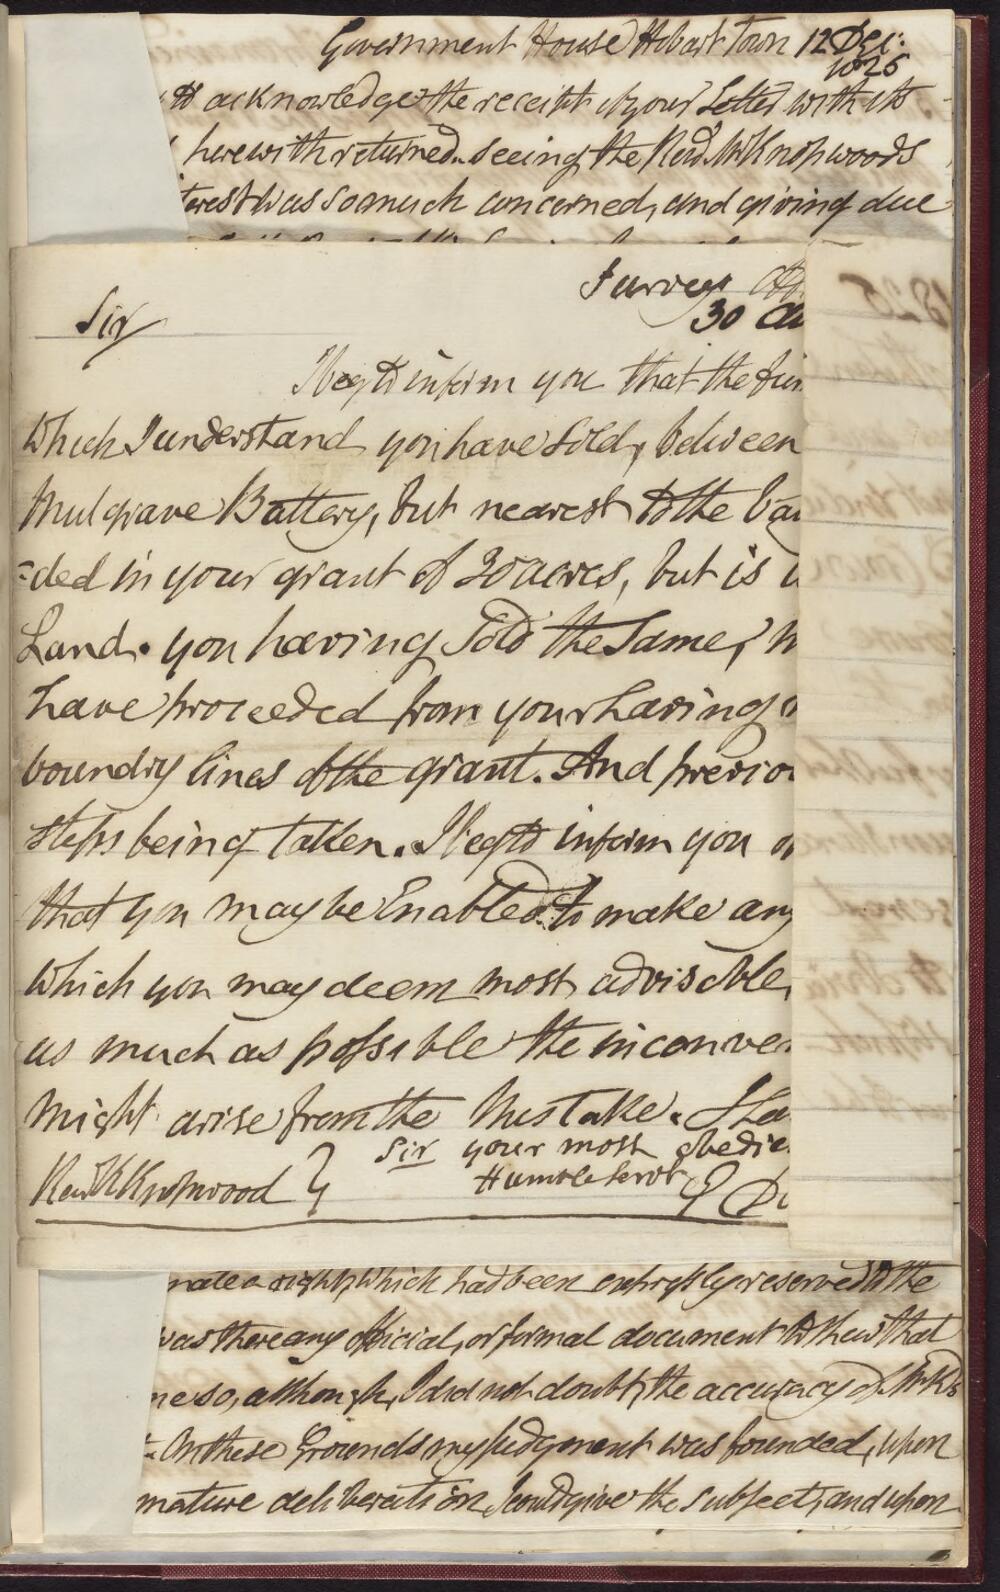 Government House Hobart Town 12 Dec:
1825
to acknowledge the receipt of your Letter with its
herewith returned. seeing the Revd. Mr Knopwoods
terest was so much concerned, and giving due
Survey
30
Sir
I beg to inform you that the
Which I understand you have Sold, between
Mulgrave Battery, but nearest to the
=ded in your grant of 30 acres, but is
Land. you having Sold the Same,
have proceeded from your having
boundry lines of the grant. And previo
steps being taken. I beg to inform you
that you may be Enabled to make any
Which you may deem most advisable,
as much as possible the inconve
might arise from the Mistake. I ha
Sir your most obedie
Humble Servt
Revd R Knopwood
right, Which had been expressly reserved to the
was there any official, or formal document to shew that
me so, although, I did not doubt, the accuracy of Mr Ks
On these Grounds my judgment was founded, upon
mature deliberation I could give the subject, and upon